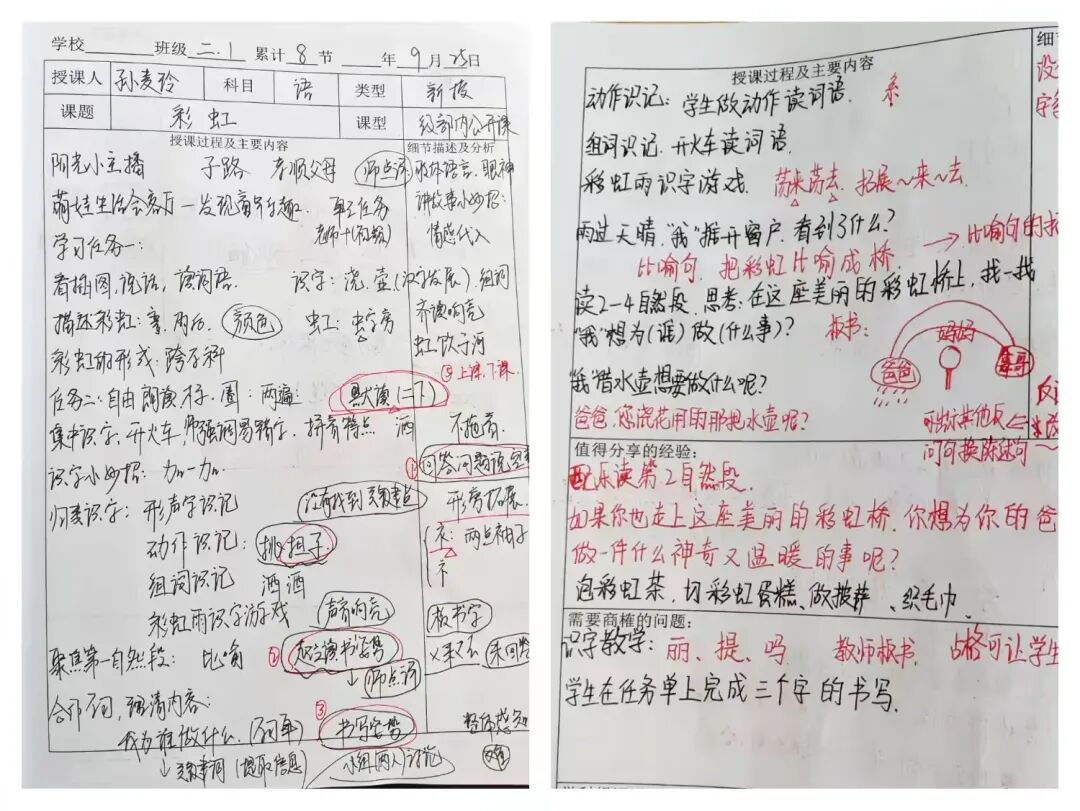 学校 班级 二.1 累计 8 节 年 9 月 25 日
授课人 孙麦玲 科目 语 类型 新授
课题 彩虹 课型 级部内公开课
授课过程及主要内容 细节描述及分析
阳光小主播 子路 孝顺父母 师点评 肢体语言、眼神
萌娃生活会客厅 — 发现童年趣. 单元任务 讲故事小妙招:
情感代入
学习任务一:
看插图,说话,读词语. 识字: 浇、壶(汉字发展)组词
描述彩虹: 雨后. 颜色 虹: 虫字旁 齐读响亮
彩虹的形成: 跨学科 虹饮于河
③上课.下课.
任务二: 自由朗读. 圈: 两遍: 默读(二下)
集中识字. 开火车, 师强调易错字. 拼音特点 洒 不拖音.
识字小妙招: 加一加. ①回答问题说完整
归类识字: 形声字识记 没有找到 形旁拓展
动作识记: 挑担子 衣: 两点袖子
组词识记 洒酒 衤
彩虹雨识字游戏 声音响亮 板书字
聚焦第一自然段: 比喻 ② 读书姿势
师点评
合作 理清内容: ③
我为谁做什么. 书写姿势 整体感知
关键词 (提取信息) 小组两人讨论 难
授课过程及主要内容
动作识记: 学生做动作读词语.
组词识记. 开火车读词语.
彩虹雨识字游戏. 荡来荡去. 拓展~来~去.
雨过天晴,“我”推开窗户,看到了什么?
比喻句. 把彩虹比喻成桥 → 比喻句的
读2-4自然段. 思考: 在这座美丽的彩虹桥上,找一找
“我”想为(谁)做(什么事)? 板书: 妈妈
爸爸 哥哥
“我”借水壶想要做什么呢?
爸爸,您浇花用的那把水壶呢?
问句换陈述句
值得分享的经验:
配乐读第2自然段.
如果你也走上这座美丽的彩虹桥. 你想为你的爸
做一件什么神奇又温暖的事呢?
泡彩虹茶、切彩虹蛋糕、做披萨、织毛巾.
需要商榷的问题:
识字教学: 丽、提、吗 教师板书. 占格可让学生
学生在任务单上完成三个字的书写.